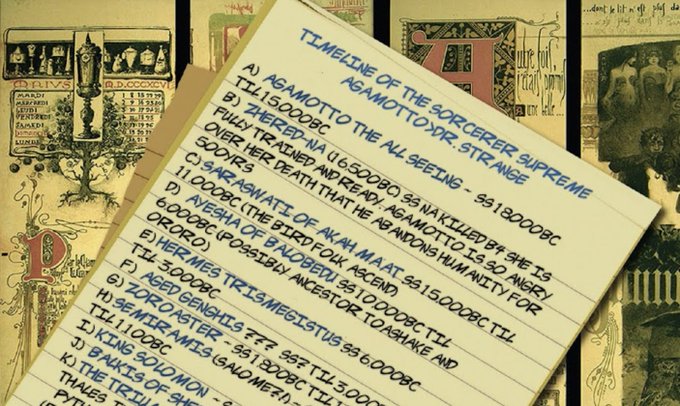 TIMELINE OF THE SORCERER SUPREME
AGAMOTTO>DR. STRANGE
A) AGAMOTTO THE ALL SEEING - SS18000BC
TIL15,000BC
B) ZHERED-NA (16500BC) SS NA KILLED B4 SHE IS
FULLY TRAINED AND READY. AGAMOTTO IS SO ANGRY
OVER HER DEATH THAT HE ABANDONS HUMANITY FOR
500YRS
C) SARASWATI OF AKAH MAAT SS15,000BC TIL
11,000BC (THE BIRD FOLK ASCEND)
D) AYESHA OF BALOBEDU SS10,000BC TIL
6,000BC (POSSIBLY ANCESTOR TO ASHAKE AND
ORORO)
E) HERMES TRISMEGISTUS SS 6,000BC
TIL 3,000BC
F) AGED GENGHIS ??? SS? TIL 3,000
G) ZOROASTER - SS1,800BC TIL
H) SEMIRAMIS (SALOME?!) -
TIL1,100BC
I) KING SOLOMON -
J) BALKIS OF SHE
K) THE TRIU
THALES
MARDI
MERCREDI
JEUDI
VENDREDI
SAMEDI
P
...dont le lit n'est plus
A